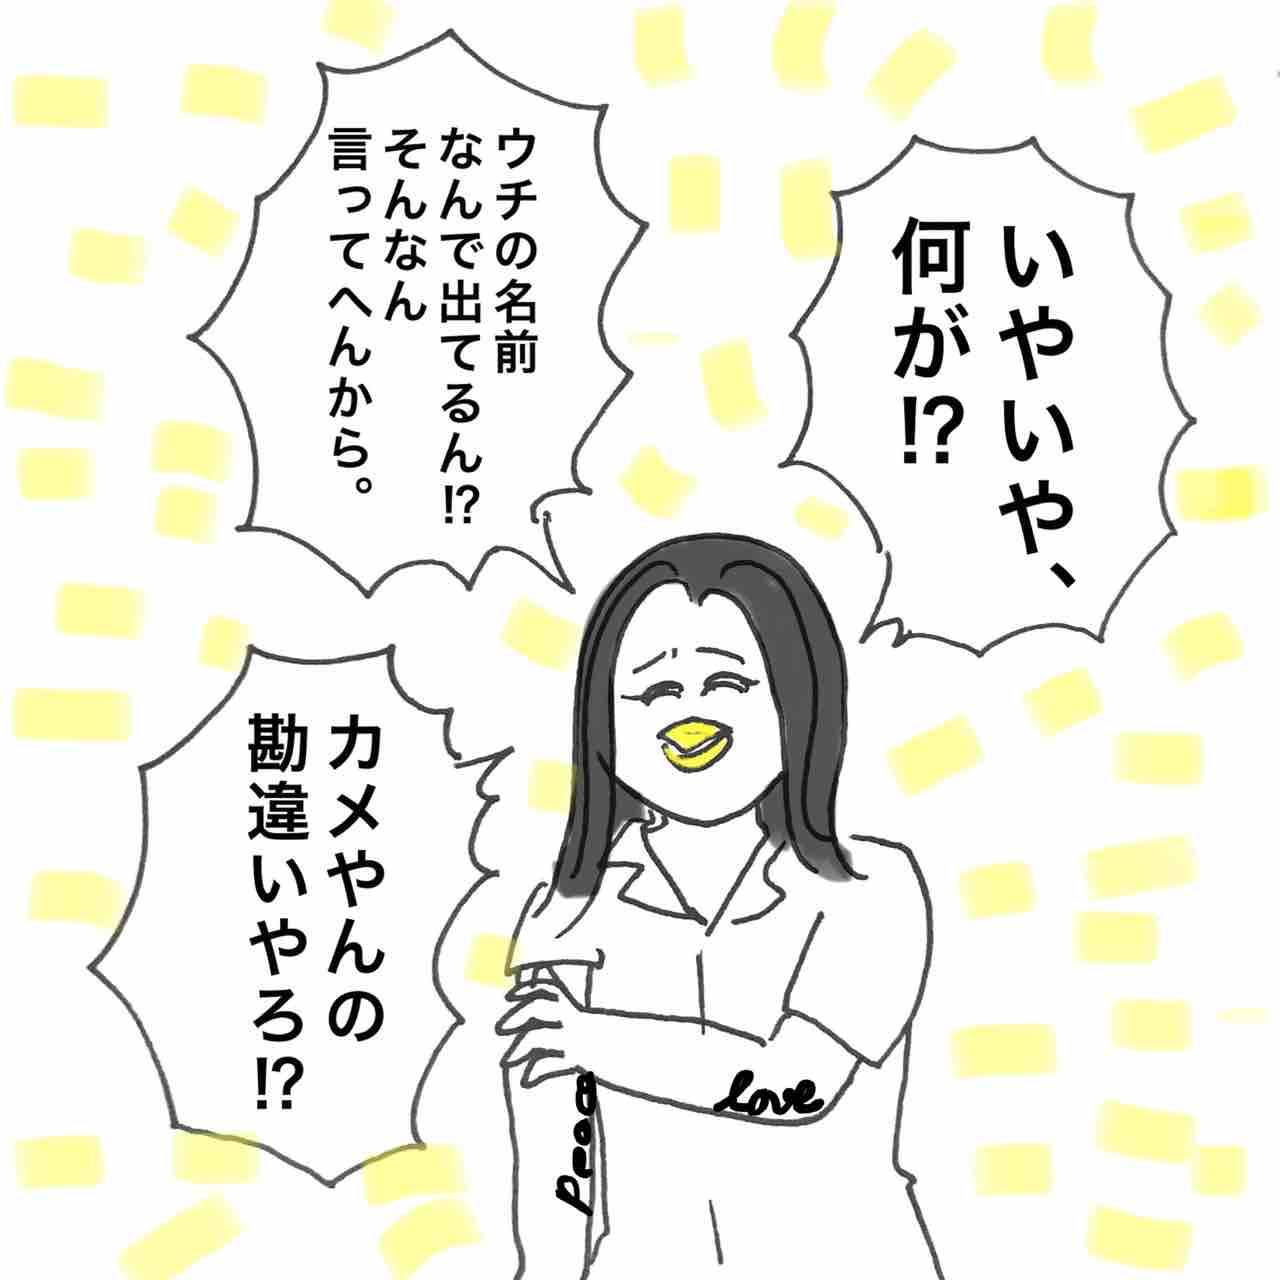 いやいや、
何が!?
ウチの名前
なんで出てるん!?
そんなん
言ってへんから。
カメやんの
勘違いやろ!?
love
peace